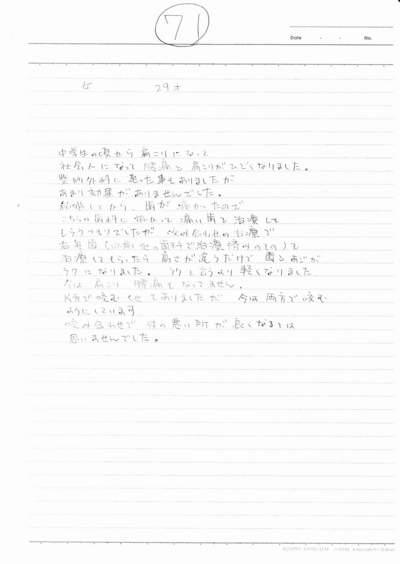 71
Date ・ ・ No.
29才
中学生の頃から肩こりになって
社会人になって腰痛と肩こりがひどくなりました。
整形外科に通った事もありましたが
あまり効果がありませんでした。
歯が痛かったので
こちらの歯科に掛かって痛い歯を治療して
もうつもりでしたが 咬み合わせの治療で
右奥歯(以前他の歯科で治療済みのもの)を
治療してもらったら 高さが違うだけで 肩もあごが
ラクになりました。 ラクと言うより軽くなりました
今は、肩こり 腰痛となってません。
片方で咬むくせもありましたが 今は両方で咬む
ようにしています
咬み合わせで 体の悪い所が良くなるとは
思いませんでした。